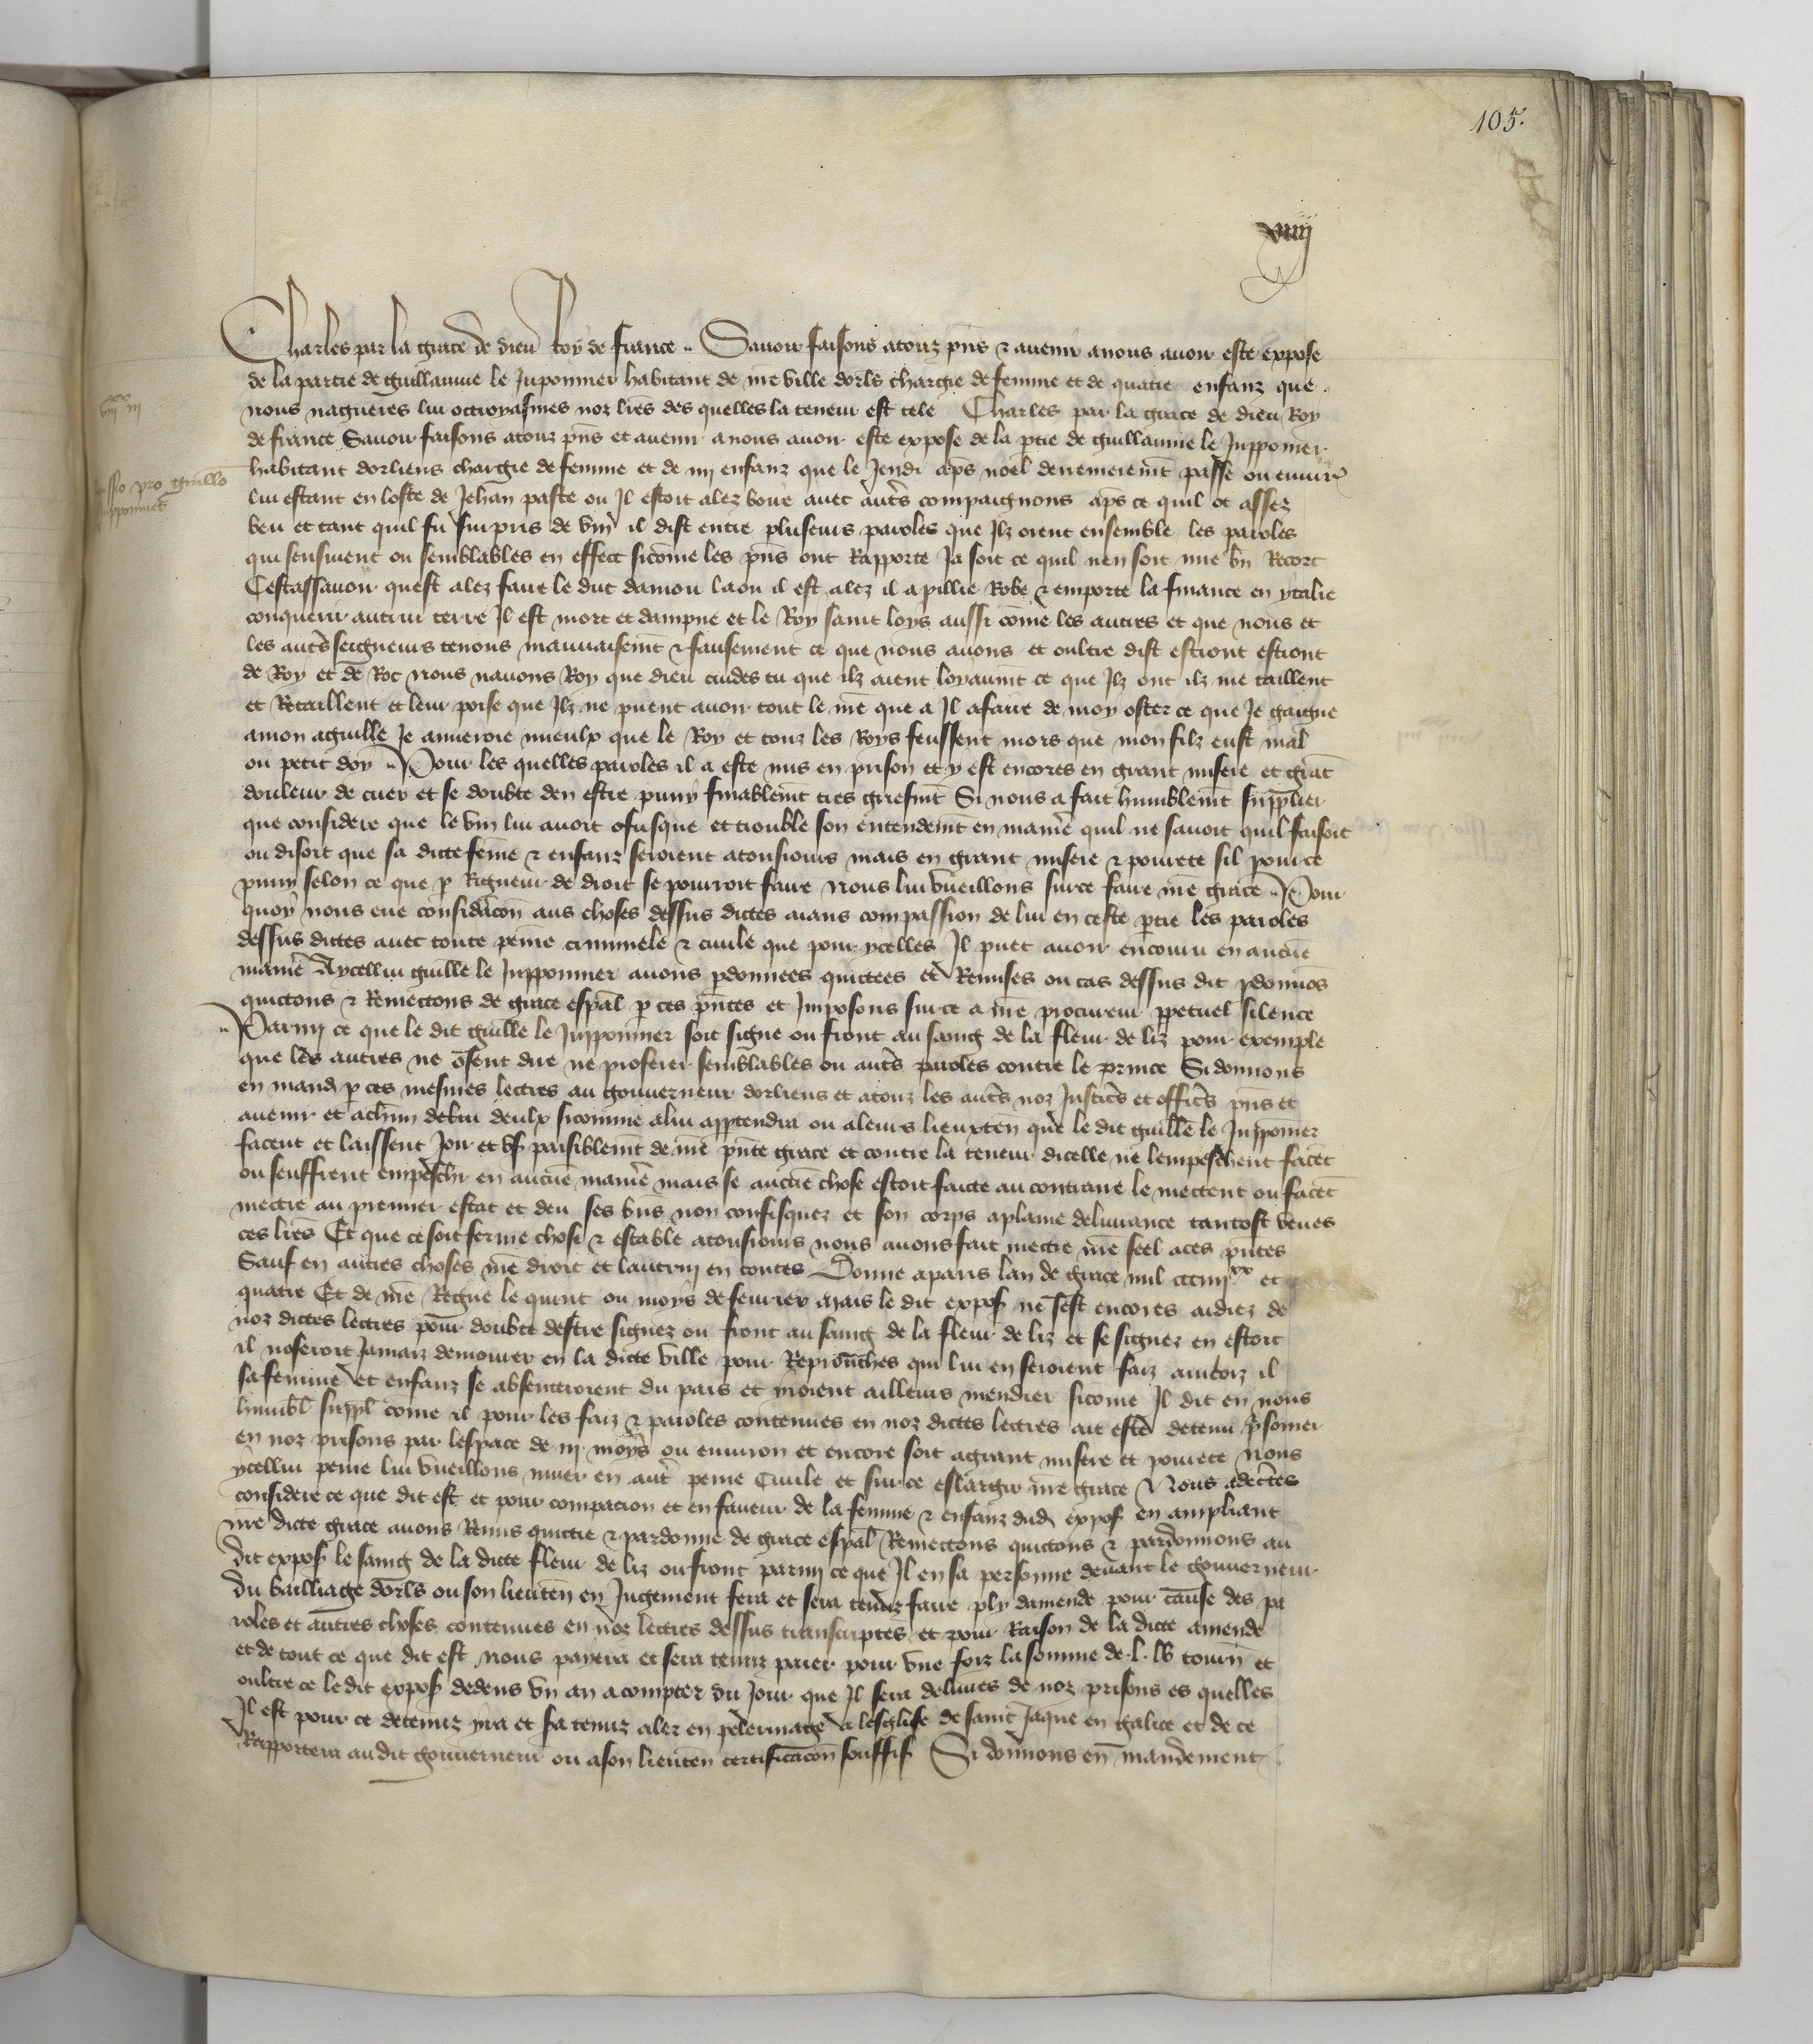 105.
xviij
Charles par la grace de dieu Roy de france .. Savoir faisons a touz pns & avenir a nous avoir este expose
de la partie de guillaume le Juponnier habitant de nre ville dorls chargie de femme et de quatre enfanz que
nous nagueres lui octroyasmes noz lres des quelles la teneur est tele Charles par la grace de dieu Roy
iiijxx iij
de france Savoir faisons a touz pns et avenir a nous avoir este expose de la ptie de guillaume le Jupponier
habitant dorliens chargie de femme et de iiij enfanz que le Jeudi aps noel derrenierement passe ou environ
pro guillo
lui estant en lostel de Jehan paste ou Il estoit alez boire avec autrs compaignons aps ce quil ot assez
beu et tant quil fu surpris de vin il dist entre plusieurs paroles que Ilz orent ensemble les paroles
qui sensuivent ou semblables en effect sicome les pns ont Rapporte Ja soit ce quil nen soit mie bn Recort
Cestassavoir quest alez faire le duc danjou la ou il est alez il a pillie Robe & emporte la finance en ytalie
conquerir autrui terre Il est mort et dampne et le Roy saint loys aussi come les autres et que nous et
les autrs seigneurs tenons mauvaisemt & faussement ce que nous avons et oultre dist estront estront
de Roy et de Roc nous navons Roy que dieu cuides tu que ilz aient loyaumt ce que Ilz ont ilz me taillent
et Retaillent et leur poise que Ilz ne puent avoir tout le mie que a Il afaire de moy oster ce que Je gaigne
a mon aguille Je ameroie mieulx que le Roy et touz les Roys feussent mors que mon filz eust mal
ou petit doy .. Pour les quelles paroles il a este mis en prison et y est encores en grant misere et grat
douleur de cuer et se doubte den estre puny finablemt tres griefmt Si nous a fait humblemt supplier
que considere que le vin lui avoit ofusque et trouble son entendemt en maniere quil ne savoit quil faisoit
ou disoit que sa dicte feme & enfanz seroient a tousjours mais en grant misere & povrete sil pour ce
puny selon ce que p Rigueur de droit se pourroit faire nous lui vueillons sur ce faire nre grace .. Pour
quoy nous eue consideracon aus choses dessus dictes aians compassion de lui en ceste ptie les paroles
dessus dictes avec toute peine criminele & civile que pour ycelles Il puet avoir encouru en aucue
maniere A ycellui guille le Jupponnier avons pdonnees quictees et Remises ou cas dessus dit pdonnos
quictons & Remectons de grace espal p ces pntes et Imposons sur ce a nre procureur ppetuel silence
.. Parmi ce que le dit guille le Jupponnier soit signe ou front au saing de la fleur de liz pour exemple
que les autres ne osent dire ne proferer semblables ou autrs paroles contre le prince Si donnons
en mand p ces mesmes lectres au gouverneur dorliens et a touz les autrs noz Justicrs et officrs pns et
avenir et a chun deulx sicomme a lui apptendra ou a leurs lieuxten que le dit guille le Jupponier
facent et laissent Joir et us paisiblemt de nre pnte grace et contre la teneur dicelle ne lempeschent facet
ou seuffrent empescher en aucue maniere mais se aucue chose estoit faicte au contraire le mectent ou facet
mectre au premier estat et deu ses bns non confisquez et son corps a plaine delivrance tantost veues
ces lres Et que ce soit ferme chose & estable a tousjours nous avons fait mectre nre seel a ces pntes
Sauf en autres choses nre droit et lautruy en toutes Donne a paris lan de grace mil ccc iiijxx et
quatre Et de nre Regne le quint ou moys de fevrier Mais le dit expos ne sest encores aidiez de
noz dictes lectres pour doubte destre signez ou front au saing de la fleur de liz et se signez en estoit
il noseroit Jamaiz demourer en la dicte ville pour Reprouches qui lui en seroient faiz aincoiz il
sa femme et enfanz se absenteroient du pais et yroient ailleurs mendier sicome Il dit en nous
humbl suppl come il pour les faiz & paroles contenues en noz dictes lectres ait este detenu prisonier
en noz prisons par lespace de iij moys ou environ et encore soit a grant misere et povrete Nous
ycellui peine lui vueillons muer en autr peine Civile et sur ce eslargir nre grace Nous adectes
considere ce que dit est et pour compacion et en faveur de la femme & enfanz dud expos en ampliant
nre dicte grace avons Remis quictie & pardonne de grace espal Remectons quictons & pardonnons au
dit expos le saing de la dicte fleur de liz ou front parmi ce que Il en sa personne devant le gouverneur
du bailliage dorls ou son lieuten en Jugement fera et sera tenuz faire ply damende pour cause des pa
roles et autres choses contenues en noz lectres dessus transcriptes et pour Raison de la dicte amende
et de tout ce que dit est nous paiera et sera tenuz paier pour une foiz la somme de .l. lb tourn et
oultre ce le dit expos dedens un an a compter du Jour que Il sera delivres de noz prisons es quelles
Il est pour ce detenuz yra et sa tenuz aler en pelerinage a lesglise de saint Jaque en galice et de ce
Rapportera au dit gouverneur ou a son lieuten certificacon souffis Si donnons en mandement